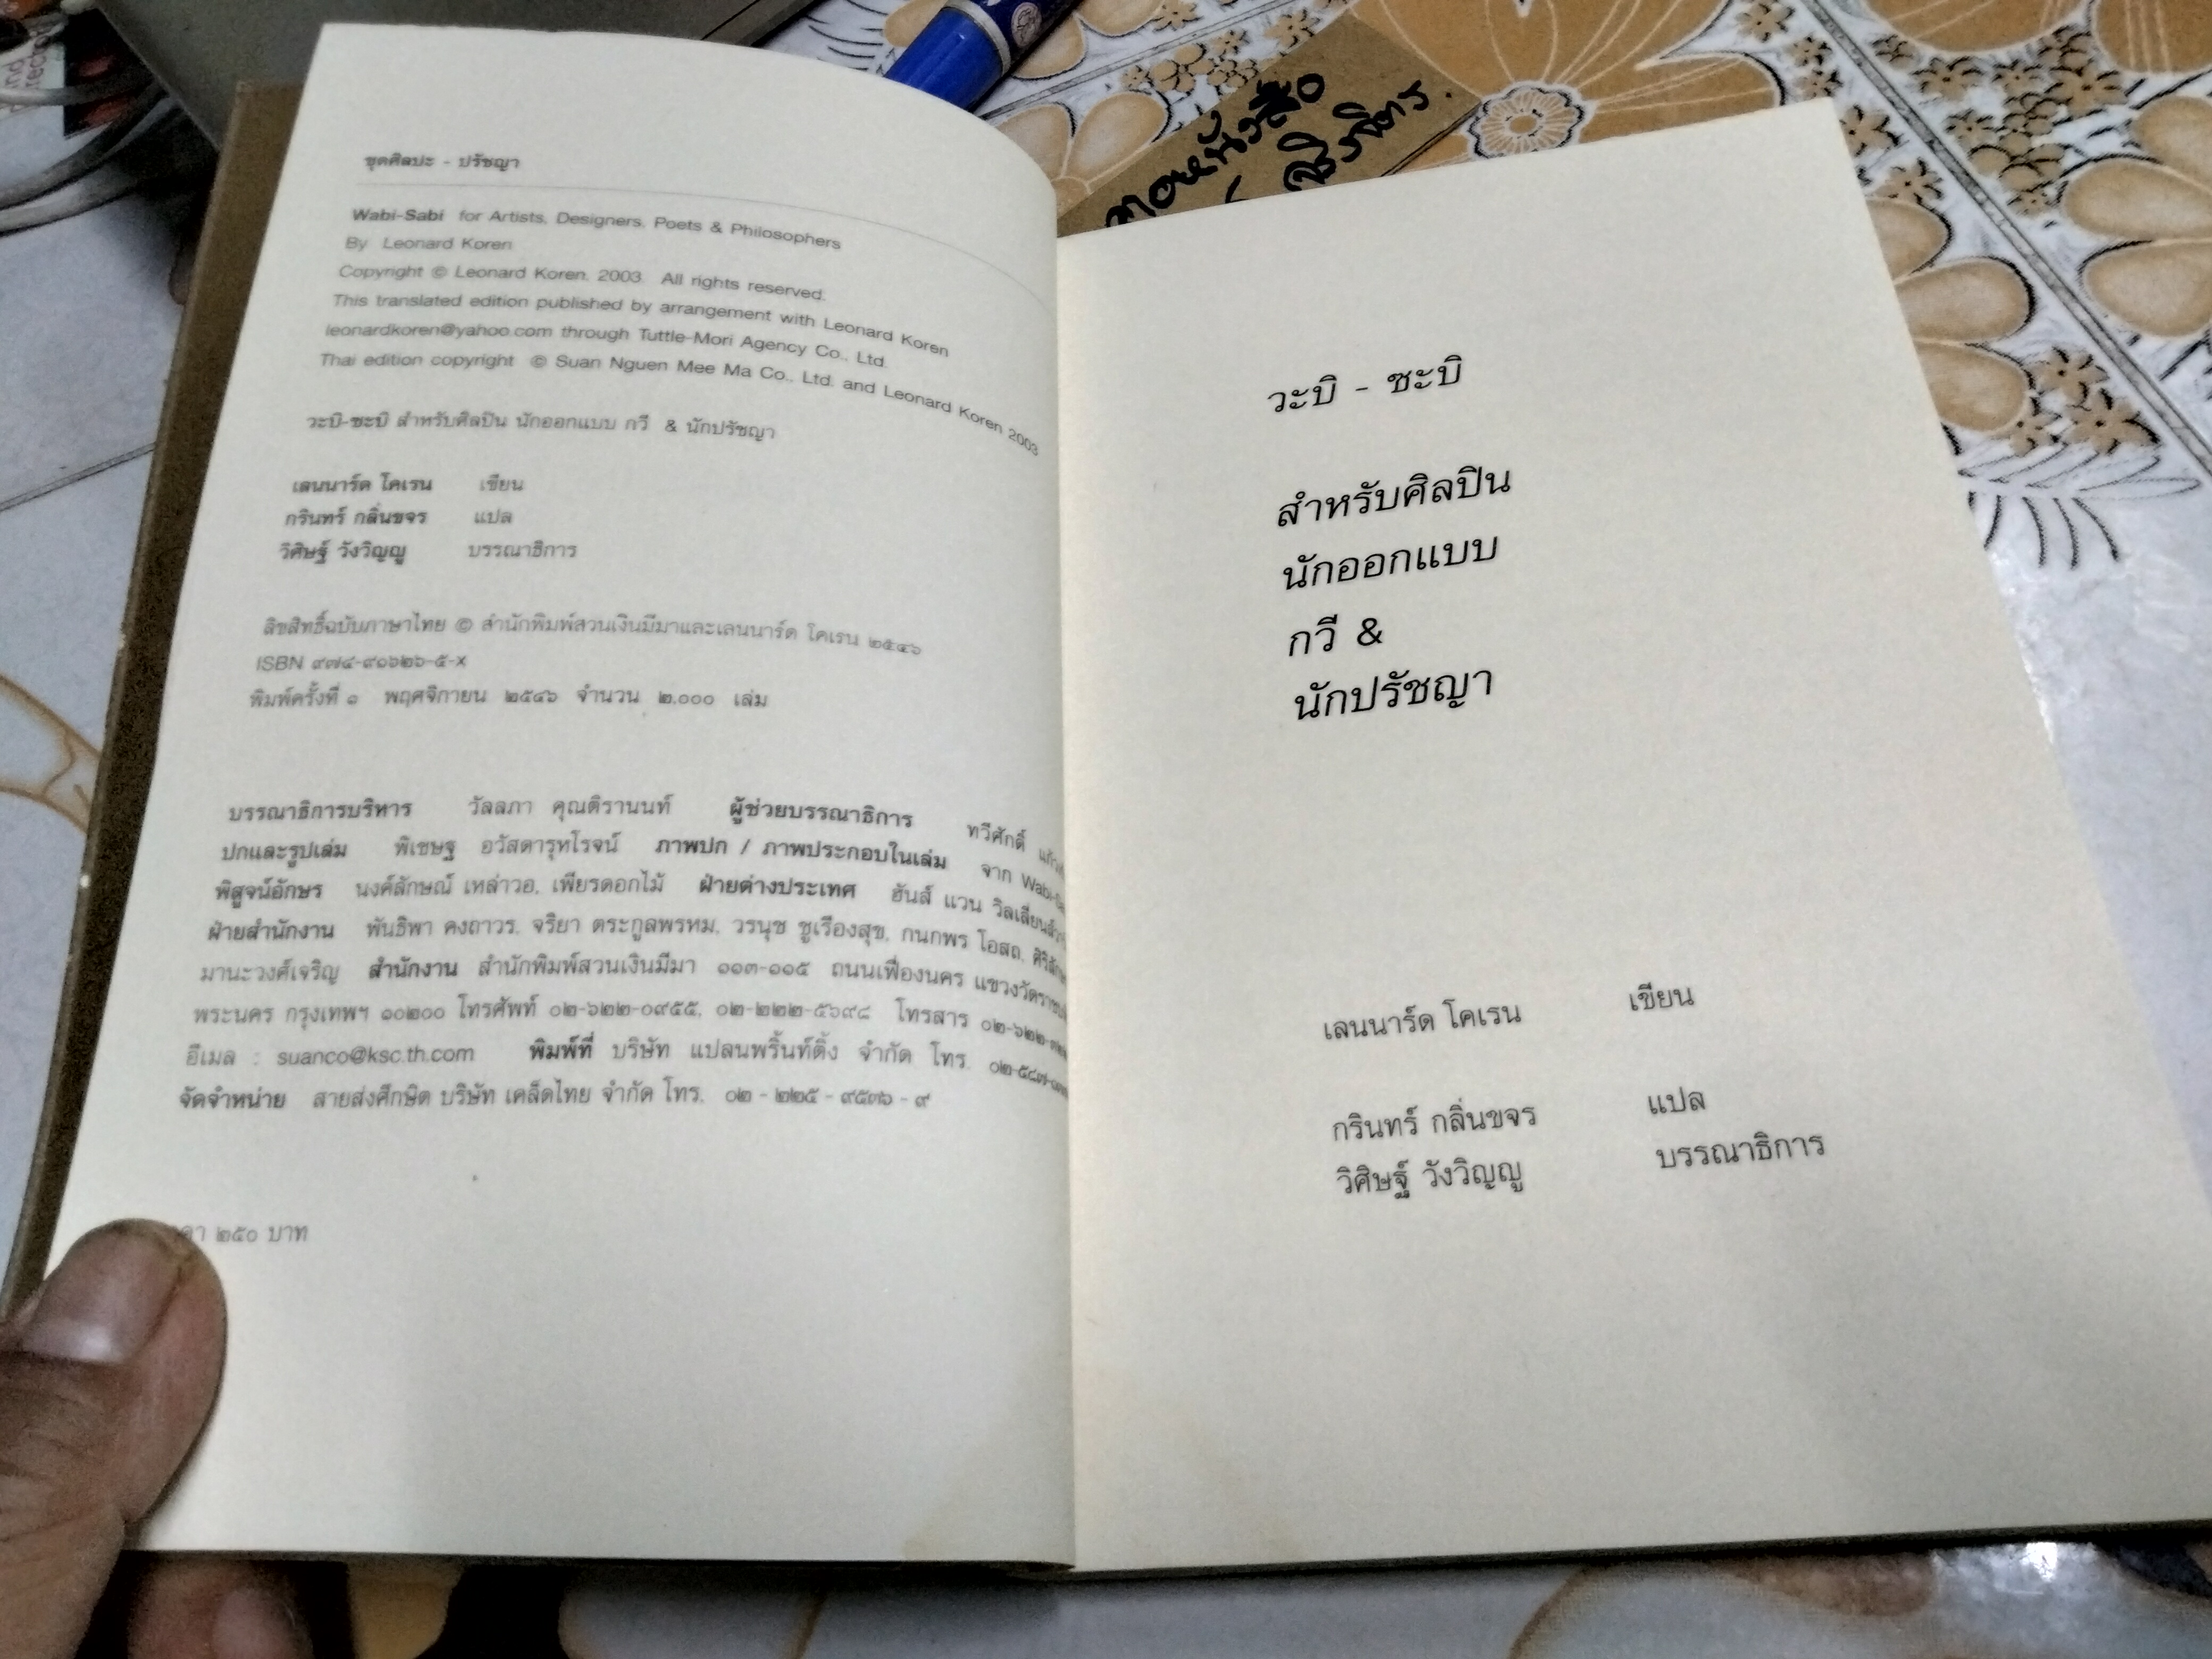 ชุดศิลปะ - ปรัชญา
Wabi-Sabi for Artists, Designers, Poets & Philosophers
By Leonard Koren
Copyright © Leonard Koren. 2003 All rights reserved.
This translated edition published by arrangement with Leonard Koren
leonardkoren@yahoo.com through Tuttle-Mori Agency Co., Ltd.
Thai edition copyright © Suan Nguen Mee Ma Co., Ltd. and Leonard Koren 2003
วะบิ-ซะบิ สำหรับศิลปิน นักออกแบบ กวี & นักปรัชญา
เลนนาร์ด โคเรน เขียน
กรินทร์ กลิ่นขจร แปล
วิศิษฐ์ วังวิญญู บรรณาธิการ
ลิขสิทธิ์ฉบับภาษาไทย © สำนักพิมพ์สวนเงินมีมาและเลนนาร์ด โคเรน ๒๕๔๖
ISBN ๙๗๔-๙๐๖๒๖-๕-x
พิมพ์ครั้งที่ ๑ พฤศจิกายน ๒๕๔๖ จำนวน ๒,๐๐๐ เล่ม
บรรณาธิการบริหาร วัลลภา คุณติรานนท์ ผู้ช่วยบรรณาธิการ ทวีศักดิ์
ปกและรูปเล่ม พิเชษฐ อวัสดารุหโรจน์ ภาพปก / ภาพประกอบในเล่ม จาก
พิสูจน์อักษร นงค์ลักษณ์ เหล่าวอ, เพียรดอกไม้ ฝ่ายต่างประเทศ ฮันส์ แวน
ฝ่ายสำนักงาน พันธิพา คงถาวร, จริยา ตระกูลพรหม, วรนุช ชูเรืองสุข, กนกพร โอสถ,
มานะวงศ์เจริญ สำนักงาน สำนักพิมพ์สวนเงินมีมา ๑๑๓-๑๑๕ ถนนเฟื่องนคร
พระนคร กรุงเทพฯ ๑๐๒๐๐ โทรศัพท์ ๐๒-๖๒๒-๐๙๕๕, ๐๒-๒๒๒-๕๖๙๘ โทรสาร
อีเมล : suanco@ksc.th.com พิมพ์ที่ บริษัท แปลนพริ้นท์ติ้ง จำกัด โทร.
จัดจำหน่าย สายส่งศึกษิต บริษัท เคล็ดไทย จำกัด โทร. ๐๒ - ๒๒๕ - ๙๕๓๖ - ๙
๒๕๐ บาท
วะบิ - ซะบิ
สำหรับศิลปิน
นักออกแบบ
กวี &
นักปรัชญา
เลนนาร์ด โคเรน เขียน
กรินทร์ กลิ่นขจร แปล
วิศิษฐ์ วังวิญญู บรรณาธิการ